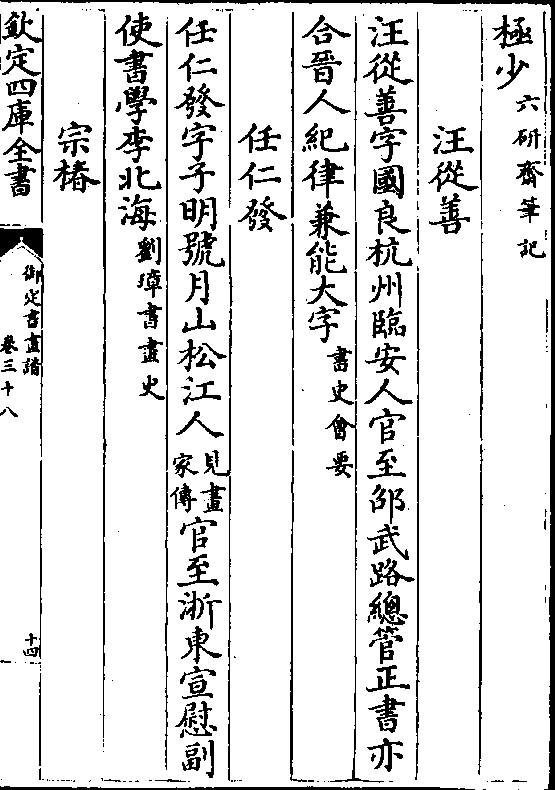 極少六研齋筆記
汪從善
汪從善字國良杭州臨安人官至邵武路總管正書亦
合晉人紀律兼能大字書史會要
任仁發
任仁發字子明號月山松江人見畫家傳官至浙東宣慰副
使書學李北海劉璋書畫史
宗椿
欽定四庫全書
御定書畫譜
卷三十八
十四